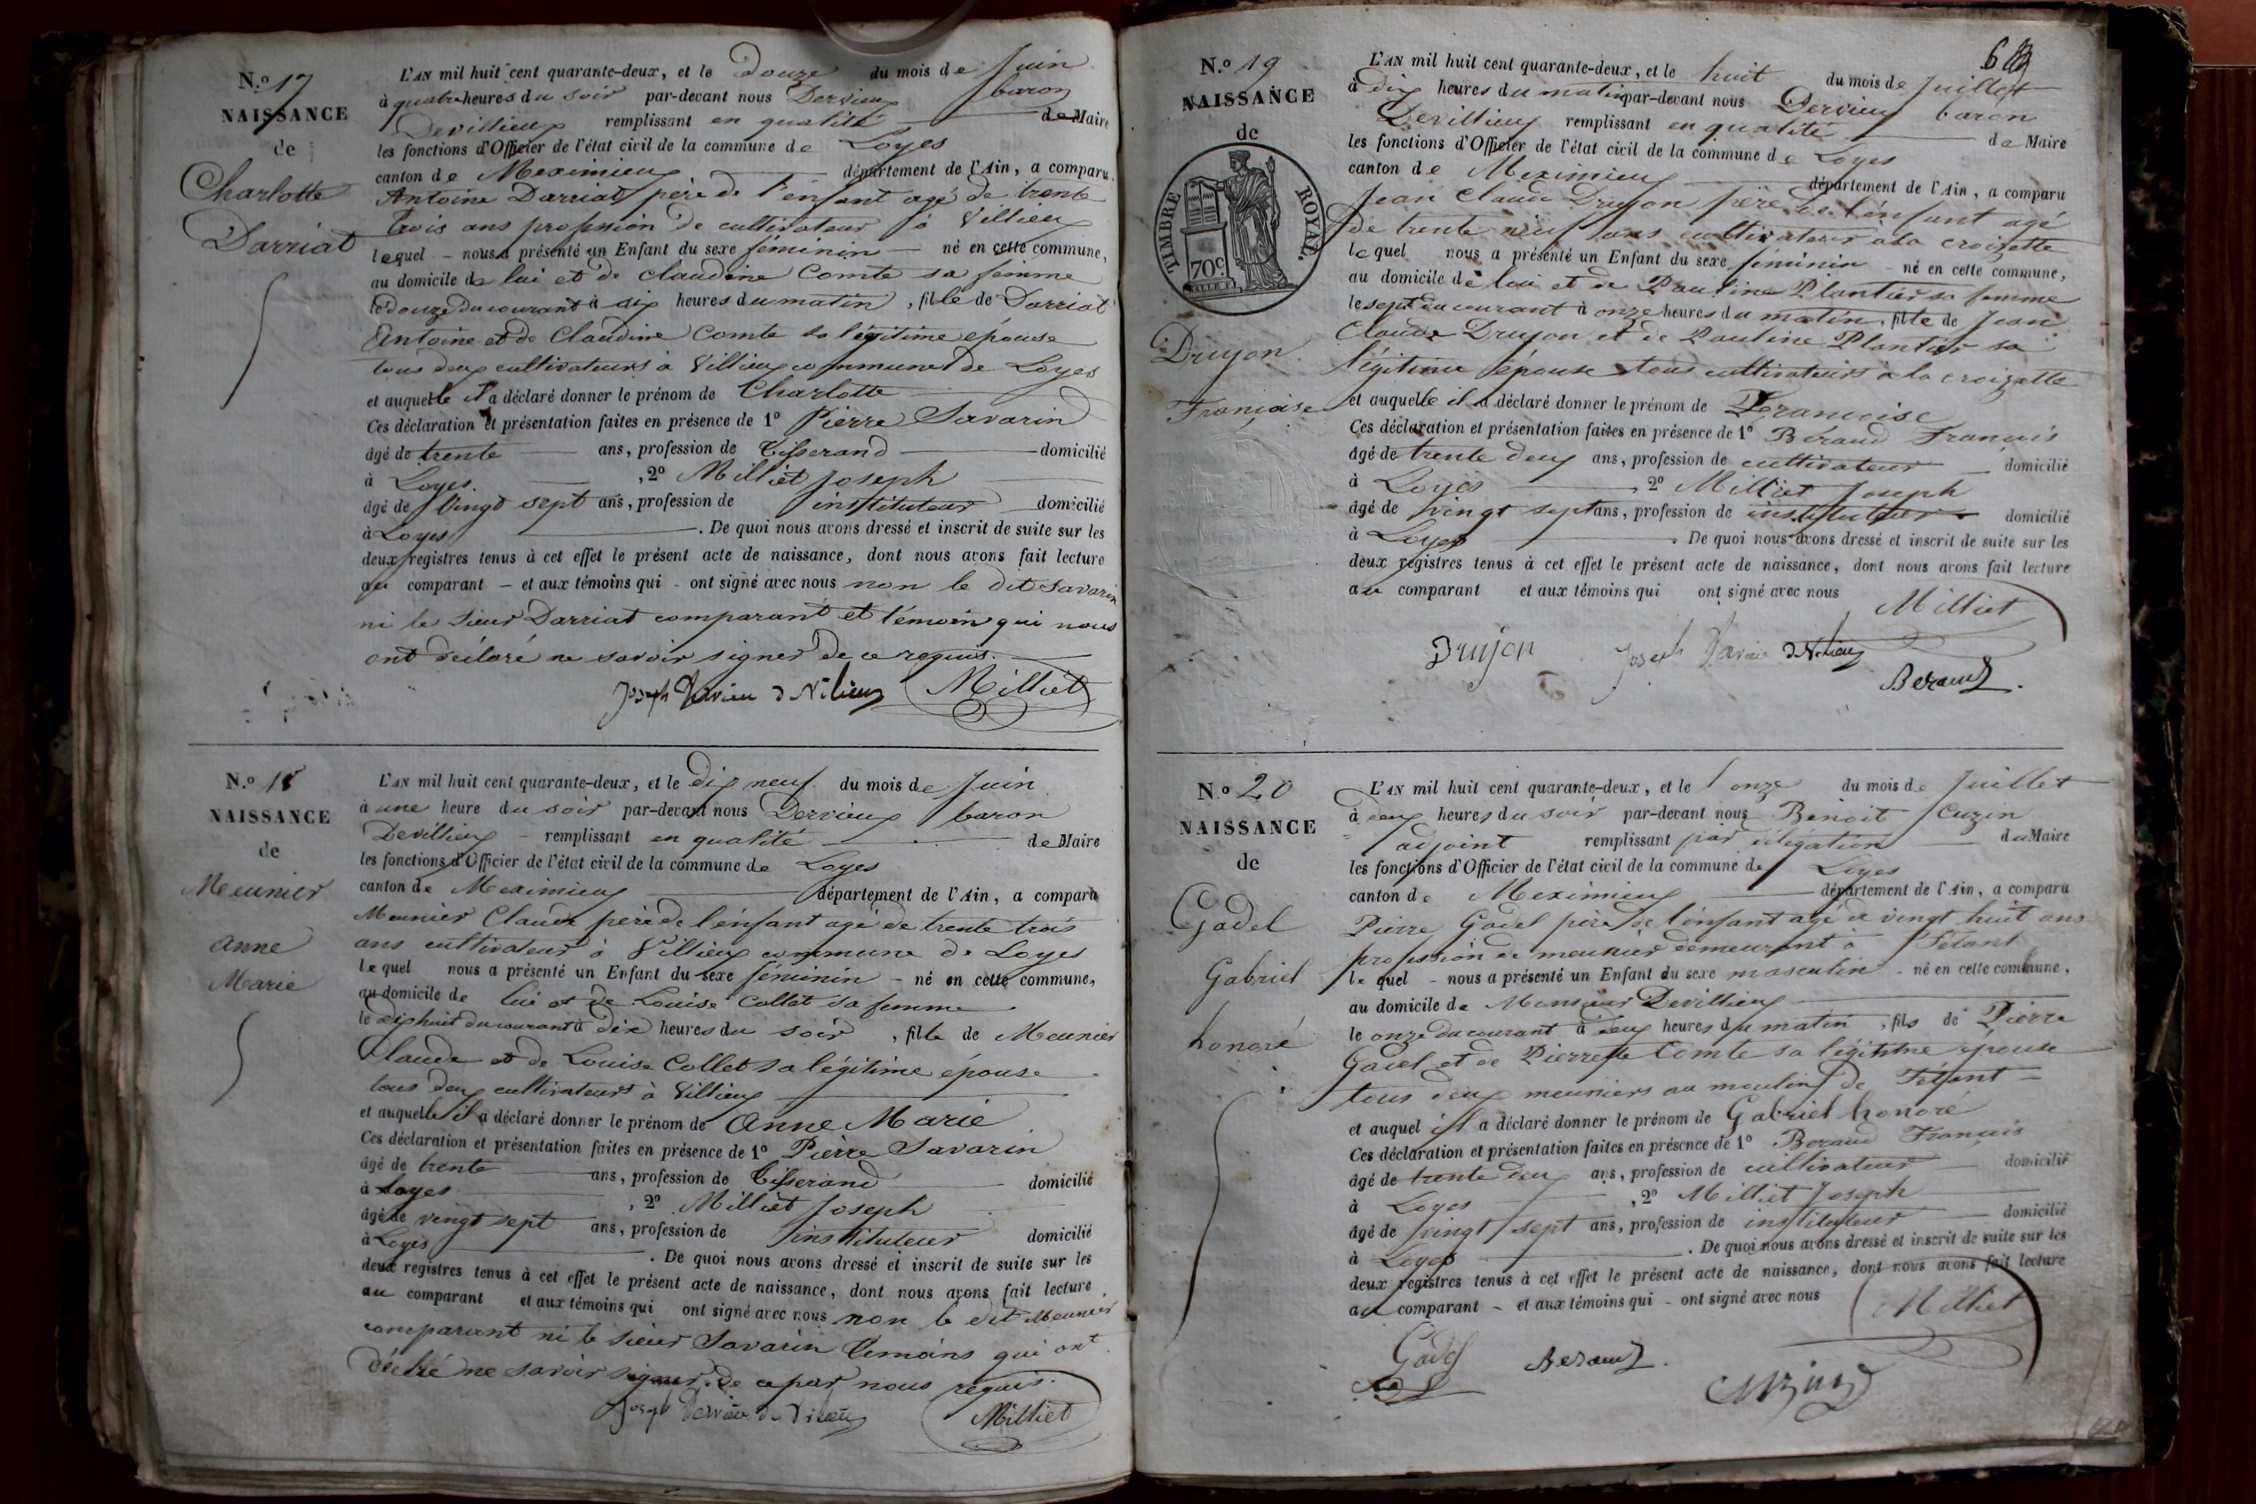 N.º 17
NAISSANCE
de
Charlotte
Darriat
L'AN mil huit cent quarante-deux, et le douze du mois de Juin
à quatre heures du soir par-devant nous Dervieux baron
Devillieux remplissant en qualité de Maire
les fonctions d'Officier de l'état civil de la commune de Loyes
canton de Meximieux département de l'Ain, a comparu
Antoine Darriat père de l'enfant agé de trente
trois ans profession de cultivateur à Villieux
lequel nous a présenté un Enfant du sexe féminin né en cette commune,
au domicile de lui et de Claudine Comte sa femme
le douze du courant à six heures du matin, fille de Darriat
Antoine et de Claudine Comte sa légitime épouse
tous deux cultivateurs à Villieux commune de Loyes
et auquelle il a déclaré donner le prénom de Charlotte
Ces déclaration et présentation faites en présence de 1º Pierre Savarin
âgé de trente ans, profession de Tisserand domicilié
à Loyes, 2º Milliet Joseph
âgé de vingt sept ans, profession de instituteur domicilié
à Loyes. De quoi nous avons dressé et inscrit de suite sur les
deux registres tenus à cet effet le présent acte de naissance, dont nous avons fait lecture
au comparant et aux témoins qui ont signé avec nous non le dit Savarin
ni le sieur Darriat comparant et témoin qui nous
ont déclaré ne savoir signer de ce requis.
Joseph Dervieu d Vilieux Milliet
N.º 18
NAISSANCE
de
Meunier
anne
Marie
L'AN mil huit cent quarante-deux, et le dix neuf du mois de Juin
à une heure du soir par-devant nous Dervieux baron
Devillieux remplissant en qualité de Maire
les fonctions d'Officier de l'état civil de la commune de Loyes
canton de Meximieux département de l'Ain, a comparu
Meunier Claude père de l'enfant agé de trente trois
ans cultivateur à Villieux commune de Loyes
lequel nous a présenté un Enfant du sexe féminin né en cette commune,
au domicile de lui et de Louise Collet sa femme
le dixhuit du courant à dix heures du soir, fille de Meunier
Claude et de Louise Collet sa légitime épouse
tous deux cultivateurs à Villieux
et auquelle il a déclaré donner le prénom de Anne Marie
Ces déclaration et présentation faites en présence de 1º Pierre Savarin
âgé de trente ans, profession de Tisserand domicilié
à Loyes, 2º Milliet Joseph
âgé de vingt sept ans, profession de instituteur domicilié
à Loyes. De quoi nous avons dressé et inscrit de suite sur les
deux registres tenus à cet effet le présent acte de naissance, dont nous avons fait lecture
au comparant et aux témoins qui ont signé avec nous non le dit Meunier
comparant ni le sieur Savarin témoins qui ont
déclré ne savoir signer de ce par nous requis.
Joseph Dervieu de Vilieux Milliet
N.º 19
NAISSANCE
de
TIMBRE ROYAL.
70c.
Drujon
Françoise
L'AN mil huit cent quarante-deux, et le huit du mois de Juillet
à dix heures du matin par-devant nous Dervieux baron
Devillieux remplissant en qualité de Maire
les fonctions d'Officier de l'état civil de la commune de Loyes
canton de Meximieux département de l'Ain, a comparu
Jean Claude Drujon père de l'enfant agé
de trente neuf ans cultivateur à la croizette
lequel nous a présenté un Enfant du sexe féminin né en cette commune,
au domicile de lui et de Pauline Plantier sa femme
le sept du courant à onze heures du matin, fille de Jean
Claude Drujon et de Pauline Plantier sa
légitime épouse tous cultivateurs à la croizette
et auquelle il a déclaré donner le prénom de Françoise
Ces déclaration et présentation faites en présence de 1º Béraud Francois
âgé de trente deux ans, profession de cultivateur domicilié
à Loyes, 2º Milliet Joseph
âgé de vingt sept ans, profession de instituteur domicilié
à Loyes. De quoi nous avons dressé et inscrit de suite sur les
deux registres tenus à cet effet le présent acte de naissance, dont nous avons fait lecture
au comparant et aux témoins qui ont signé avec nous Milliet
Drujon Joseph Dervieu d Vilieux
Beraud
N.º 20
NAISSANCE
de
Gadel
Gabriel
honoré
L'AN mil huit cent quarante-deux, et le onze du mois de Juillet
à deux heures du soir par-devant nous Benoit Cuzin
adjoint remplissant par délégation du Maire
les fonctions d'Officier de l'état civil de la commune de Loyes
canton de Meximieux département de l'Ain, a comparu
Pierre Gadel père de l'enfant agé de vingt huit ans
profession de meunier demeurant à Fétant
lequel nous a présenté un Enfant du sexe masculin né en cette commune,
au domicile de Monsieur Devillieux
le onze du courant à deux heures du matin, fils de Pierre
Gadel et de Pierrette Comte sa légitime épouse
tous deux meuniers au moulin de Fétant
et auquel il a déclaré donner le prénom de Gabriel honoré
Ces déclaration et présentation faites en présence de 1º Beraud Francois
âgé de trente deux ans, profession de cultivateur domicilié
à Loyes, 2º Milliet Joseph
âgé de vingt sept ans, profession de instituteur domicilié
à Loyes. De quoi nous avons dressé et inscrit de suite sur les
deux registres tenus à cet effet le présent acte de naissance, dont nous avons fait lecture
au comparant et aux témoins qui ont signé avec nous Milliet
Gadel Beraud Cuzin